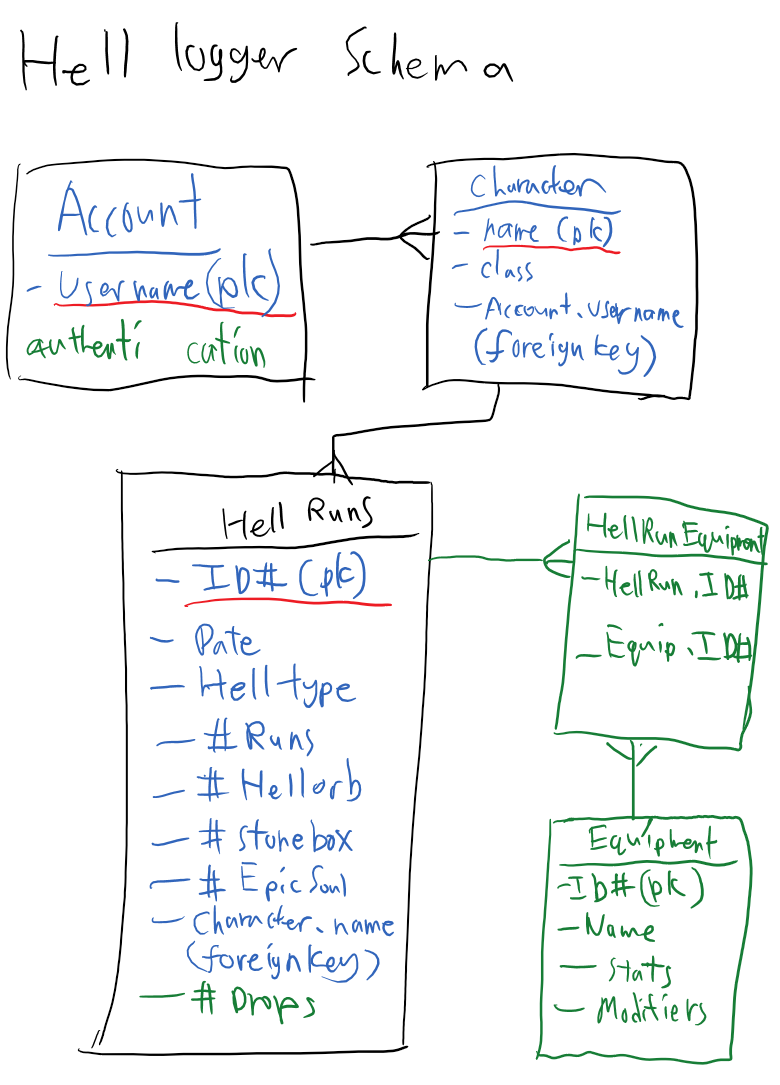 Hell logger Schema
Account
- Username (pk)
authenti cation
Character
- name (pk)
- class
- Account.username
(foreign key)
Hell Runs
- ID# (pk)
- Date
- Hell type
- # Runs
- # Hellorb
- # stonebox
- # Epic Soul
- Character.name
(foreign key)
- # Drops
HellRun Equipment
- HellRun.ID#
- Equip.ID#
Equipment
- ID# (pk)
- Name
- Stats
- Modifiers